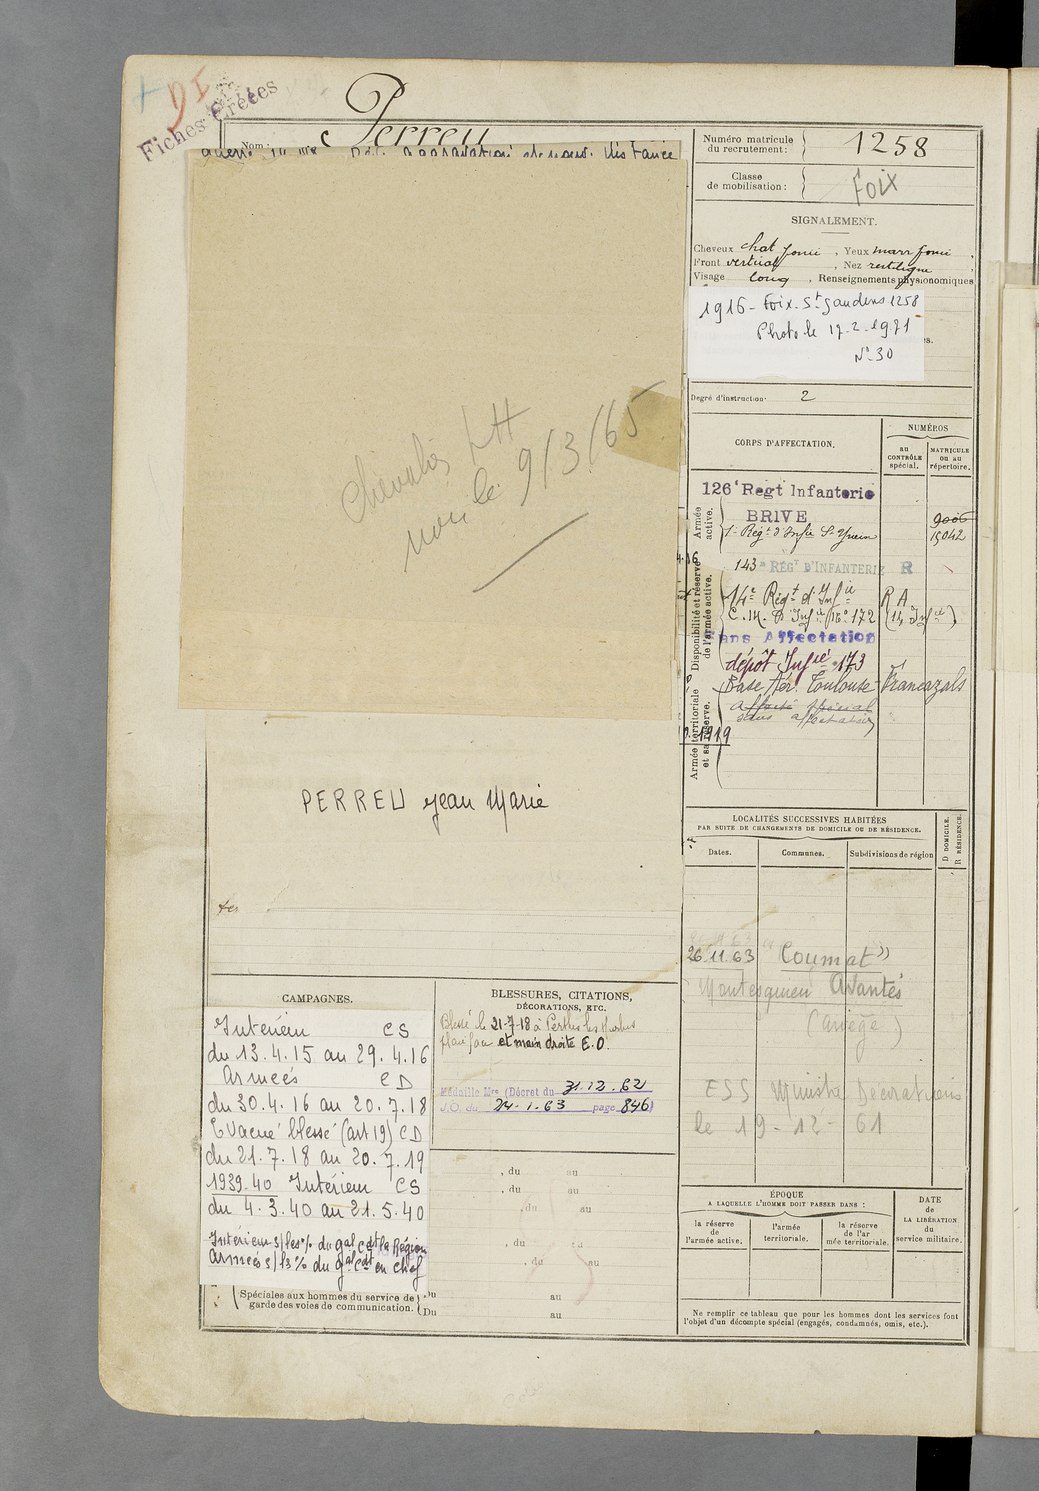 DI
Fiches Créées
Perreu
Nom :
distance
Chevalier LH
le 9/3/65
PERREU Jean Marie
Numéro matricule
du recrutement : 1258
Classe
de mobilisation :
Foix
SIGNALEMENT.
Cheveux chat foncé, Yeux marr foncé
Front vertical, Nez rectiligne
Visage long, Renseignements physionomiques
1916 - Foix. St Gaudens 1258
Photo le 17-2-1971
N° 30
Degré d'instruction 2
CORPS D'AFFECTATION.
NUMÉROS
au
CONTRÔLE
spécial.
MATRICULE
ou au
répertoire.
Armée
active.
126e Regt Infanterie
BRIVE
9006
15042
Disponibilité et réserve
de l'armée active.
143e RÉGT D'INFANTERIE R
14e Régt d'Infie R A
C. M. D'Infie No 172 (14 Infie)
Sans Affectation
dépôt Infie 173
Armée territoriale
et sa réserve.
Base Aér. Toulouse-Francazals
affecté spécial
sans affectation
1919
LOCALITÉS SUCCESSIVES HABITÉES
PAR SUITE DE CHANGEMENTS DE DOMICILE OU DE RÉSIDENCE.
Dates.
Communes.
Subdivisions de région
D DOMICILE.
R RÉSIDENCE.
26.11.63 "Coumat"
Montesquieu Avantès
(Ariège)
ESS Ministre Décorations
le 19-12-61
CAMPAGNES.
Intérieur CS
du 13.4.15 au 29.4.16
Armées CD
du 30.4.16 au 20.7.18
Evacué blessé (art 19) CD
du 21.7.18 au 20.7.19
1939-40 Intérieur CS
du 4.3.40 au 21.5.40
Intérieur s/les % du gal Cdt la Région
Armées s/ls % du gal Cdt en Chef
Spéciales aux hommes du service de
garde des voies de communication.
Du au
Du au
BLESSURES, CITATIONS,
DÉCORATIONS, ETC.
Blessé le 21-7-18 à Perthes les Hurlus
plaie face et main droite E.O.
Médaille Mre (Décret du 31.12.62
J.O. du 24-1-63 page 846)
, du au
, du au
, du au
, du au
, du au
ÉPOQUE
A LAQUELLE L'HOMME DOIT PASSER DANS :
la réserve
de
l'armée active.
l'armée
territoriale.
la réserve
de l'ar
mée territoriale.
DATE
de
LA LIBÉRATION
du
service militaire.
Ne remplir ce tableau que pour les hommes dont les services font
l'objet d'un décompte spécial (engagés, condamnés, omis, etc.).